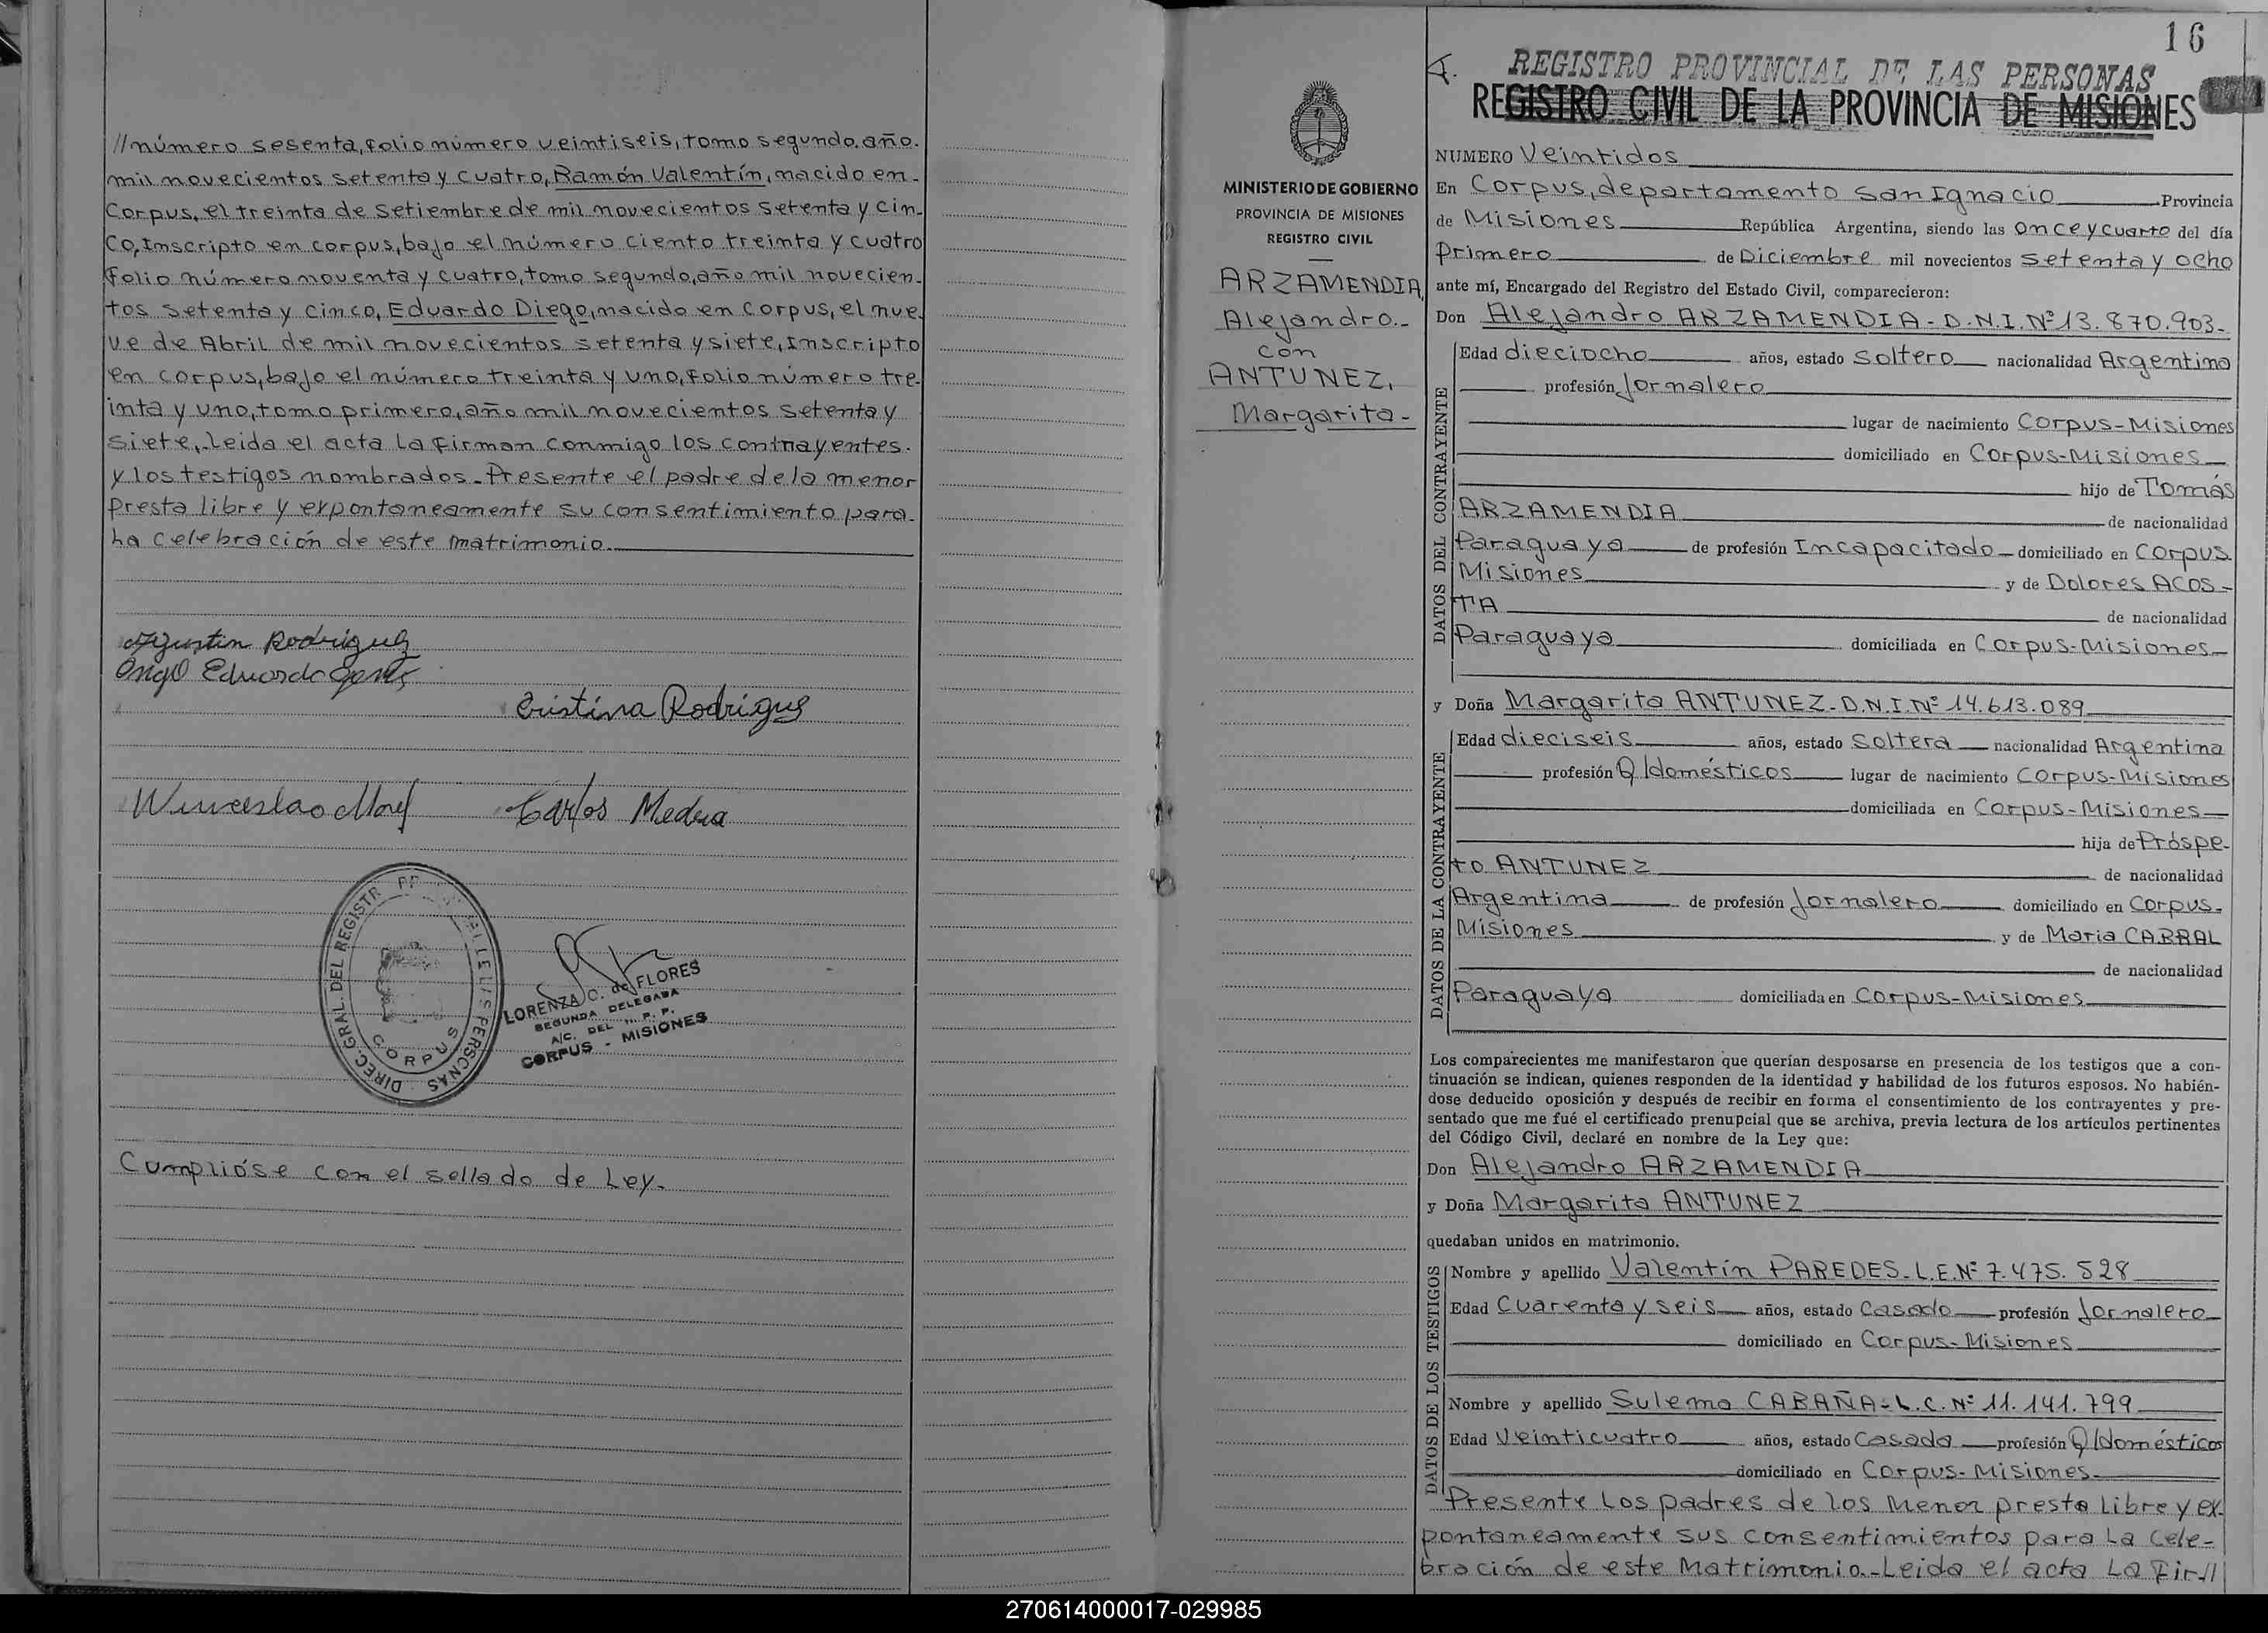 //número sesenta, folio número veintiseis, tomo segundo, año.
mil novecientos setenta y cuatro, Ramón Valentín, nacido en-
Corpus, el treinta de setiembre de mil novecientos setenta y cin-
co, Inscripto en corpus, bajo el número ciento treinta y cuatro
folio número noventa y cuatro, tomo segundo, año mil novecien-
tos setenta y cinco, Eduardo Diego, nacido en Corpus, el nue-
ve de Abril de mil novecientos setenta y siete, Inscripto
en corpus, bajo el número treinta y uno, folio número tre-
inta y uno, tomo primero, año mil novecientos setenta y
siete,- Leida el acta la firman conmigo los contrayentes.
y los testigos nombrados.- Presente el padre de la menor
presta libre y expontaneamente su consentimiento para-
La celebración de este matrimonio.
Agustin Rodriguez
Angel Eduardo
Cristina Rodrigues
Carlos Medera
DIREC. GRAL. DEL REGISTR PERSONAS
CORPUS
LORENZA C. de FLORES
SEGUNDA DELEGADA
A/C. DEL R. P. P.
CORPUS - MISIONES
Cumplióse con el sellado de Ley.
16
MINISTERIO DE GOBIERNO
PROVINCIA DE MISIONES
REGISTRO CIVIL
ARZAMENDIA,
Alejandro.-
con
ANTUNEZ,
Margarita-
REGISTRO PROVINCIAL DE LAS PERSONAS
REGISTRO CIVIL DE LA PROVINCIA DE MISIONES
NUMERO Veintidos
En Corpus, departamento San Ignacio Provincia
de Misiones República Argentina, siendo las once y cuarto del día
primero de Diciembre mil novecientos setenta y ocho
ante mí, Encargado del Registro del Estado Civil, comparecieron:
Don Alejandro ARZAMENDIA- D.N.I. Nº 13.870.903-
DATOS DEL CONTRAYENTE
Edad dieciocho años, estado soltero nacionalidad Argentina
profesión Jornalero
lugar de nacimiento Corpus-Misiones
domiciliado en Corpus-Misiones
hijo de Tomás
ARZAMENDIA de nacionalidad
Paraguaya de profesión Incapacitado domiciliado en Corpus-
Misiones y de Dolores ACOS-
TA de nacionalidad
Paraguaya domiciliada en Corpus-Misiones
y Doña Margarita ANTUNEZ- D.N.I. Nº 14.613.089
DATOS DE LA CONTRAYENTE
Edad dieciseis años, estado soltera nacionalidad Argentina
profesión Q/domésticos lugar de nacimiento Corpus-Misiones
domiciliada en Corpus-Misiones
hija de Próspe-
ro ANTUNEZ de nacionalidad
Argentina de profesión Jornalero domiciliado en Corpus-
Misiones y de Maria CABRAL
de nacionalidad
Paraguaya domiciliada en Corpus-Misiones
Los comparecientes me manifestaron que querían desposarse en presencia de los testigos que a con-
tinuación se indican, quienes responden de la identidad y habilidad de los futuros esposos. No habién-
dose deducido oposición y después de recibir en forma el consentimiento de los contrayentes y pre-
sentado que me fué el certificado prenupcial que se archiva, previa lectura de los artículos pertinentes
del Código Civil, declaré en nombre de la Ley que:
Don Alejandro ARZAMENDIA
y Doña Margarita ANTUNEZ
quedaban unidos en matrimonio.
DATOS DE LOS TESTIGOS
Nombre y apellido Valentín PAREDES- L.E. Nº 7.475.528
Edad Cuarenta y seis años, estado Casado profesión Jornalero
domiciliado en Corpus-Misiones
Nombre y apellido Sulema CABAÑA- L.C. Nº 11.141.799
Edad Veinticuatro años, estado Casada profesión Q/domésticos
domiciliado en Corpus-Misiones
Presente Los padres de los Menor presta Libre y ex-
pontaneamente sus consentimientos para La Cele-
bración de este Matrimonio.- Leida el acta La Fir-//
270614000017-029985